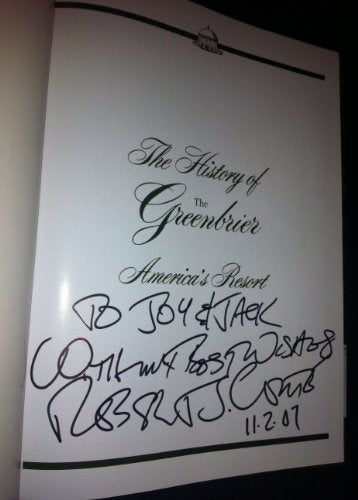 The History of
The
Greenbrier
America's Resort
TO JOY & JACK
WITH MY BEST WISHES
ROBERT S. CONTE
11.2.07